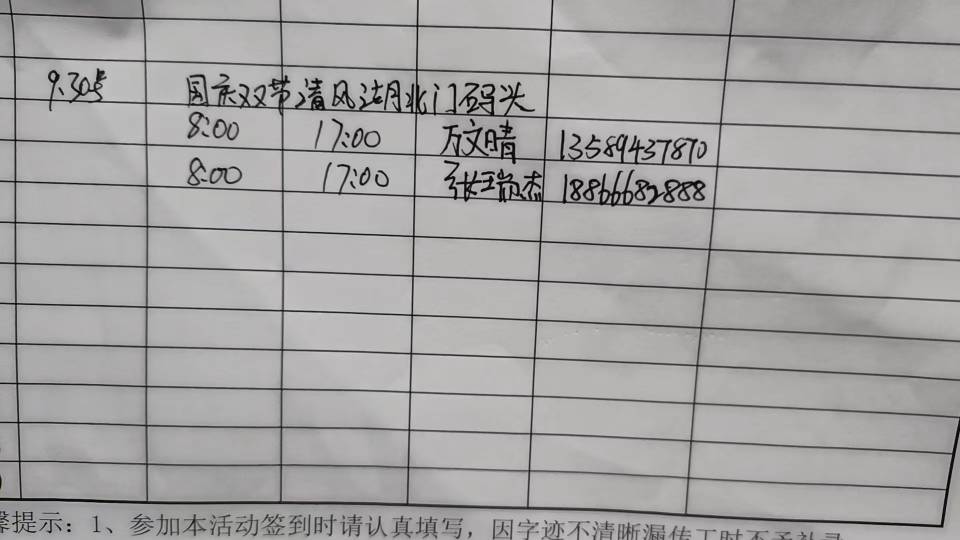 9.30号 国庆双节清风湖北门码头
8:00 17:00 万文晴 13589437870
8:00 17:00 张瑞杰 18866682888
提示：1、参加本活动签到时请认真填写，因字迹不清晰漏